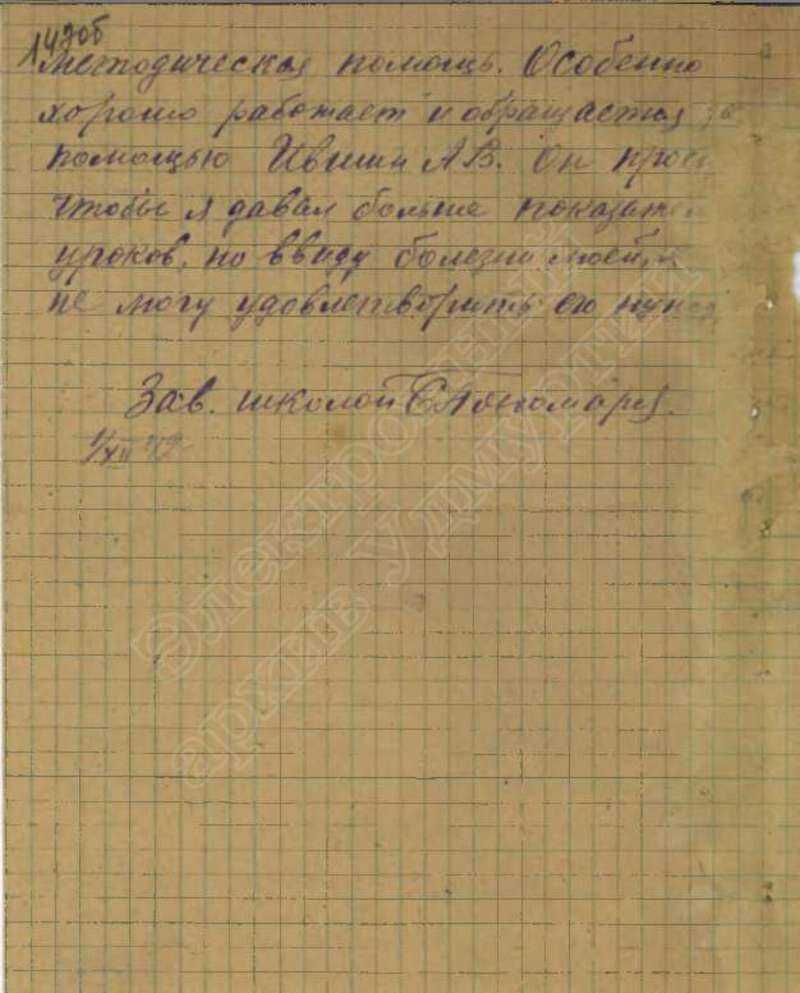 147об
методическая помощь. Особенно
хорошо работает и обращается за
помощью Ившин А.В. Он
чтобы я давал больше
уроков, но ввиду болезни моей, я
не могу удовлетворить его
Зав. школой
1/XII 42
Электронный
архив Удмуртии